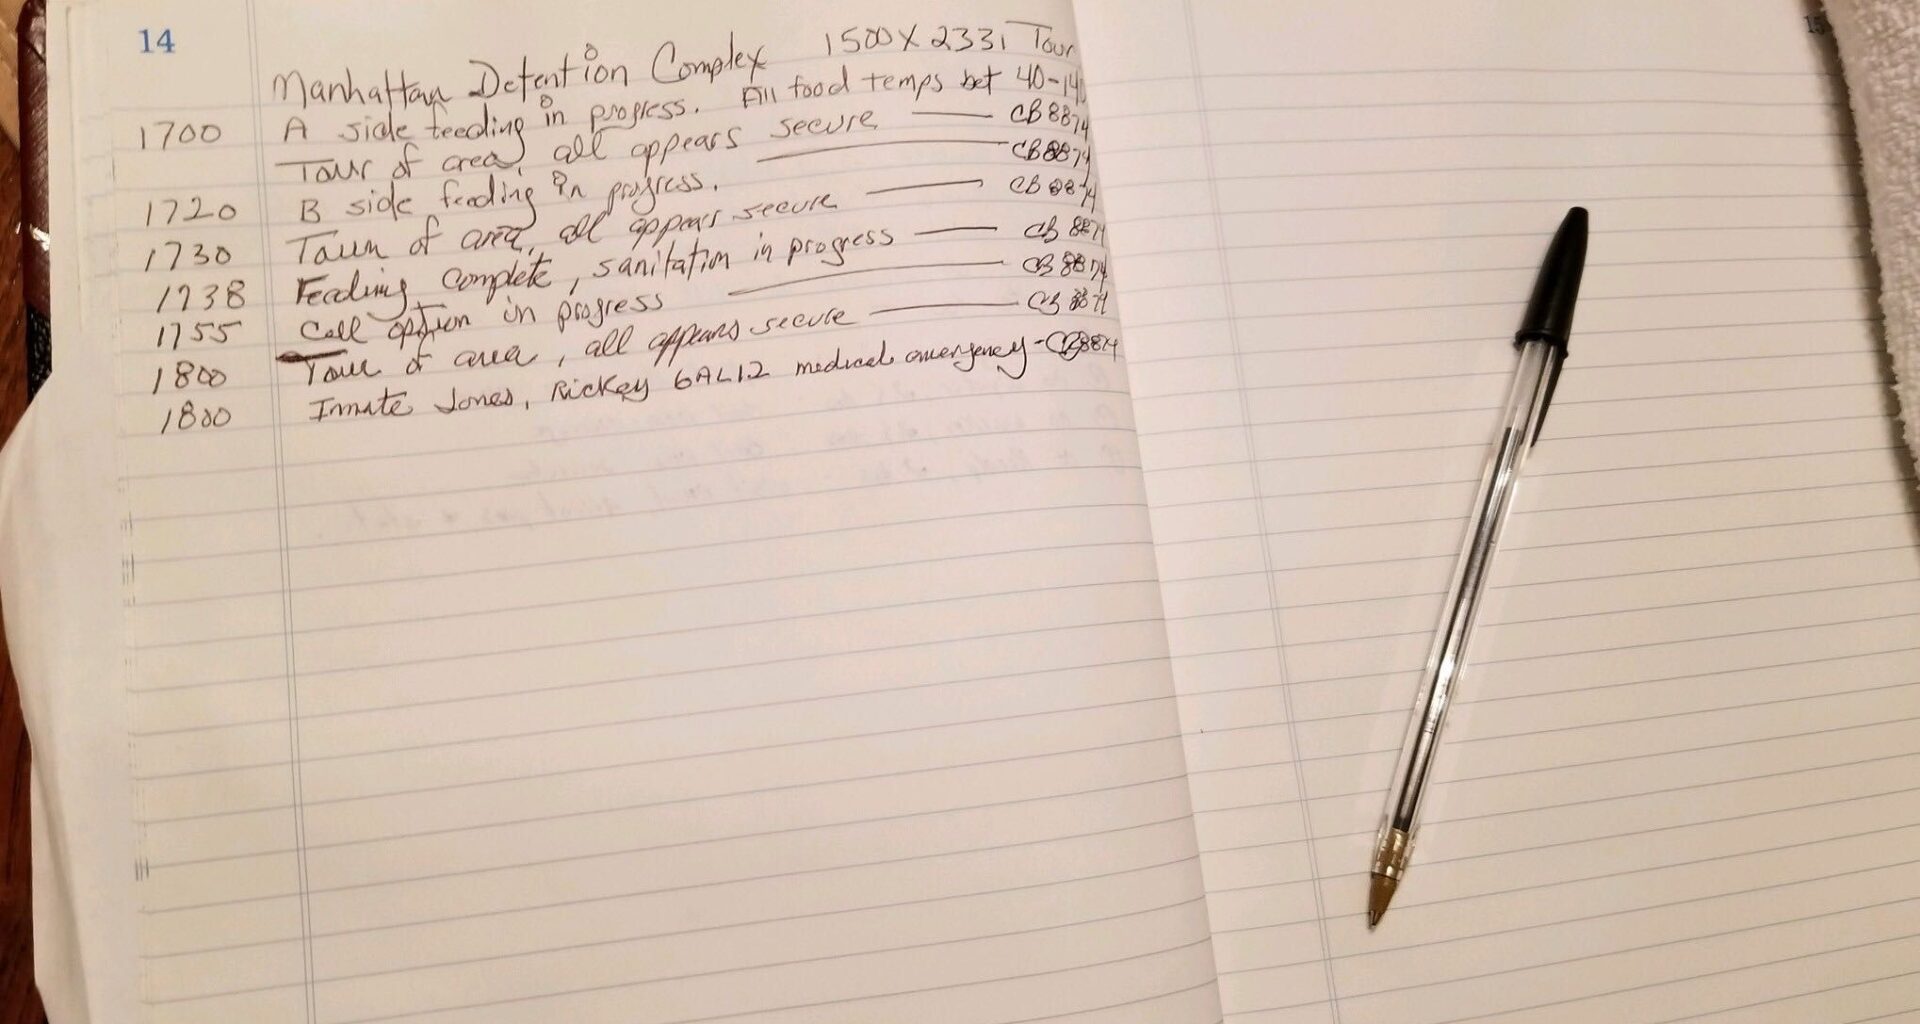 14
Manhattan Detention Complex 1500 X 2331 Tour
1700 A side feeding in progress. All food temps bet 40-140
Tour of area, all appears secure CB8874
1720 B side feeding in progress. CB8874
1730 Tour of area, all appears secure CB8874
1738 Feeding complete, sanitation in progress CB8874
1755 Cell option in progress CB8874
1800 Tour of area, all appears secure CB8874
1800 Inmate Jones, Rickey 6AL12 medical emergency - CB8874
15